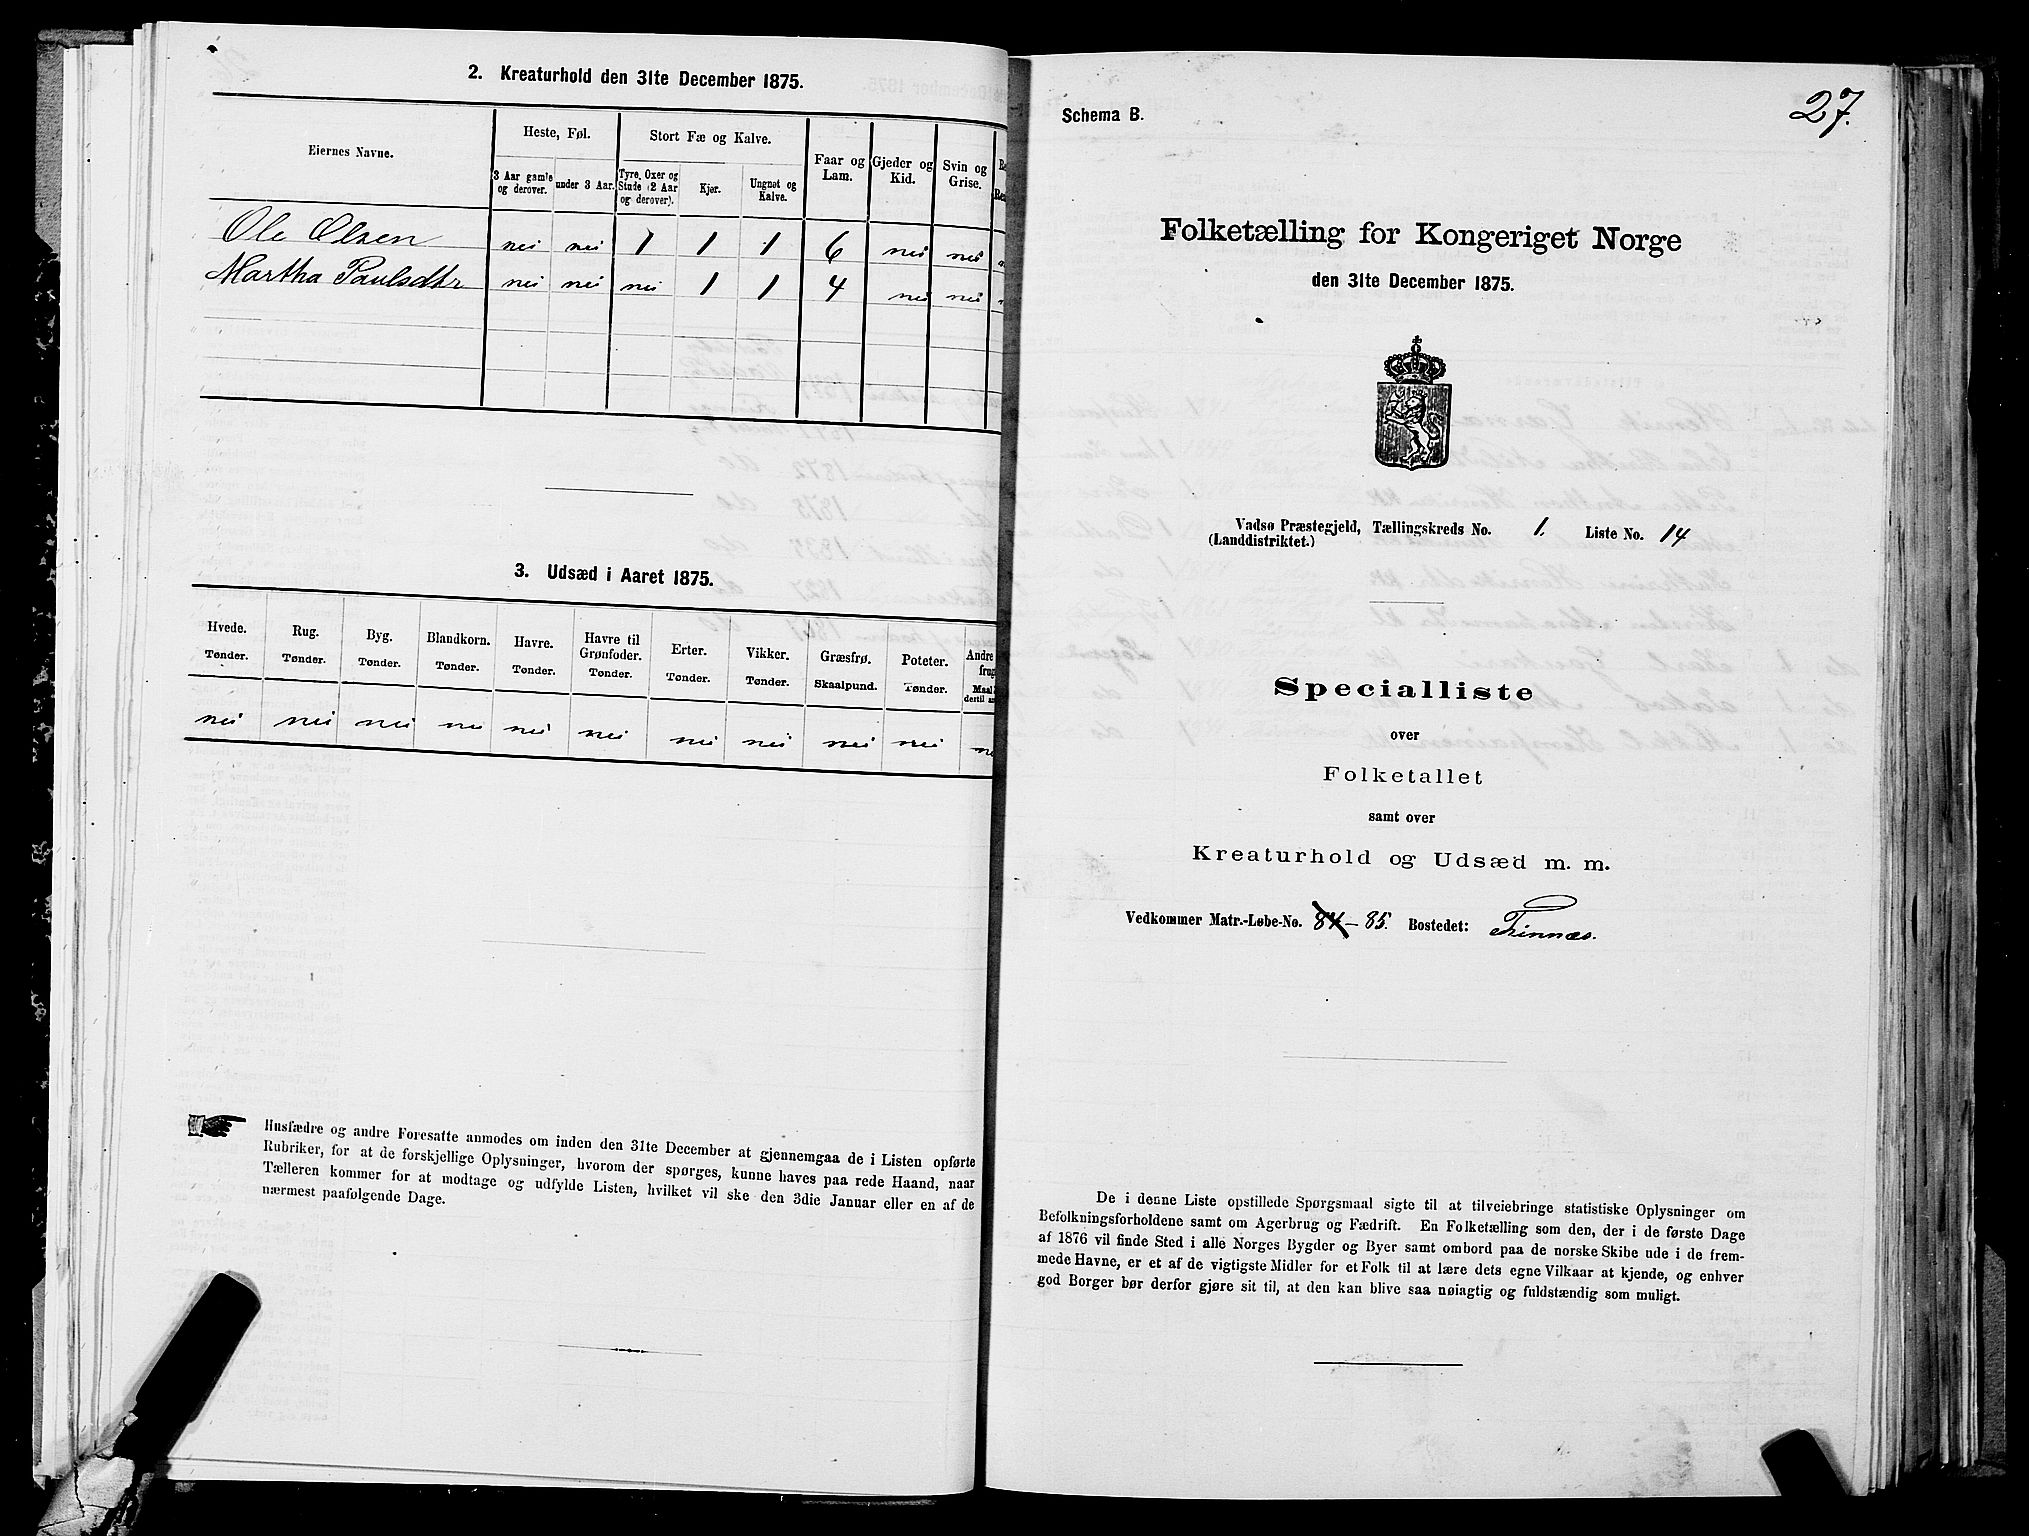 2. Kreaturhold den 31te December 1875.
Eiernes Navne.
Heste, Føl.
Stort Fæ og Kalve.
Faar og Lam.
Gjeder og Kid.
Svin og Grise.
3 Aar gamle og derover.
under 3 Aar.
Tyre, Oxer og Stude (2 Aar og derover).
Kjør.
Ungnøt og Kalve.
Ole Olsen nei nei 1 1 1 6 nei nei
Martha Paulsdtr nei nei nei 1 1 4 nei nei
3. Udsæd i Aaret 1875.
Hvede. Rug. Byg. Blandkorn. Havre. Havre til Grønfoder. Erter. Vikker. Græsfrø. Poteter. Andre
Tønder. Tønder. Tønder. Tønder. Tønder. Tønder. Tønder. Tønder. Skaalpund. Tønder. Maal
nei nei nei nei nei nei nei nei nei nei
Husfædre og andre Foresatte anmodes om inden den 31te December at gjennemgaa de i Listen opførte
Rubriker, for at de forskjellige Oplysninger, hvorom der spørges, kunne haves paa rede Haand, naar
Tælleren kommer for at modtage og udfylde Listen, hvilket vil ske den 3die Januar eller en af de
nærmest paafølgende Dage.
27.
Schema B.
Folketælling for Kongeriget Norge
den 31te December 1875.
Vadsø Præstegjeld, Tællingskreds No. 1. Liste No. 14
(Landdistriktet.)
Specialliste
over
Folketallet
samt over
Kreaturhold og Udsæd m. m.
Vedkommer Matr.-Løbe-No. 84-85. Bostedet: Finnæs.
De i denne Liste opstillede Spørgsmaal sigte til at tilveiebringe statistiske Oplysninger om
Befolkningsforholdene samt om Agerbrug og Fædrift. En Folketælling som den, der i de første Dage
af 1876 vil finde Sted i alle Norges Bygder og Byer samt ombord paa de norske Skibe ude i de frem-
mede Havne, er et af de vigtigste Midler for et Folk til at lære dets egne Vilkaar at kjende, og enhver
god Borger bør derfor gjøre sit til, at den kan blive saa nøiagtig og fuldstændig som muligt.